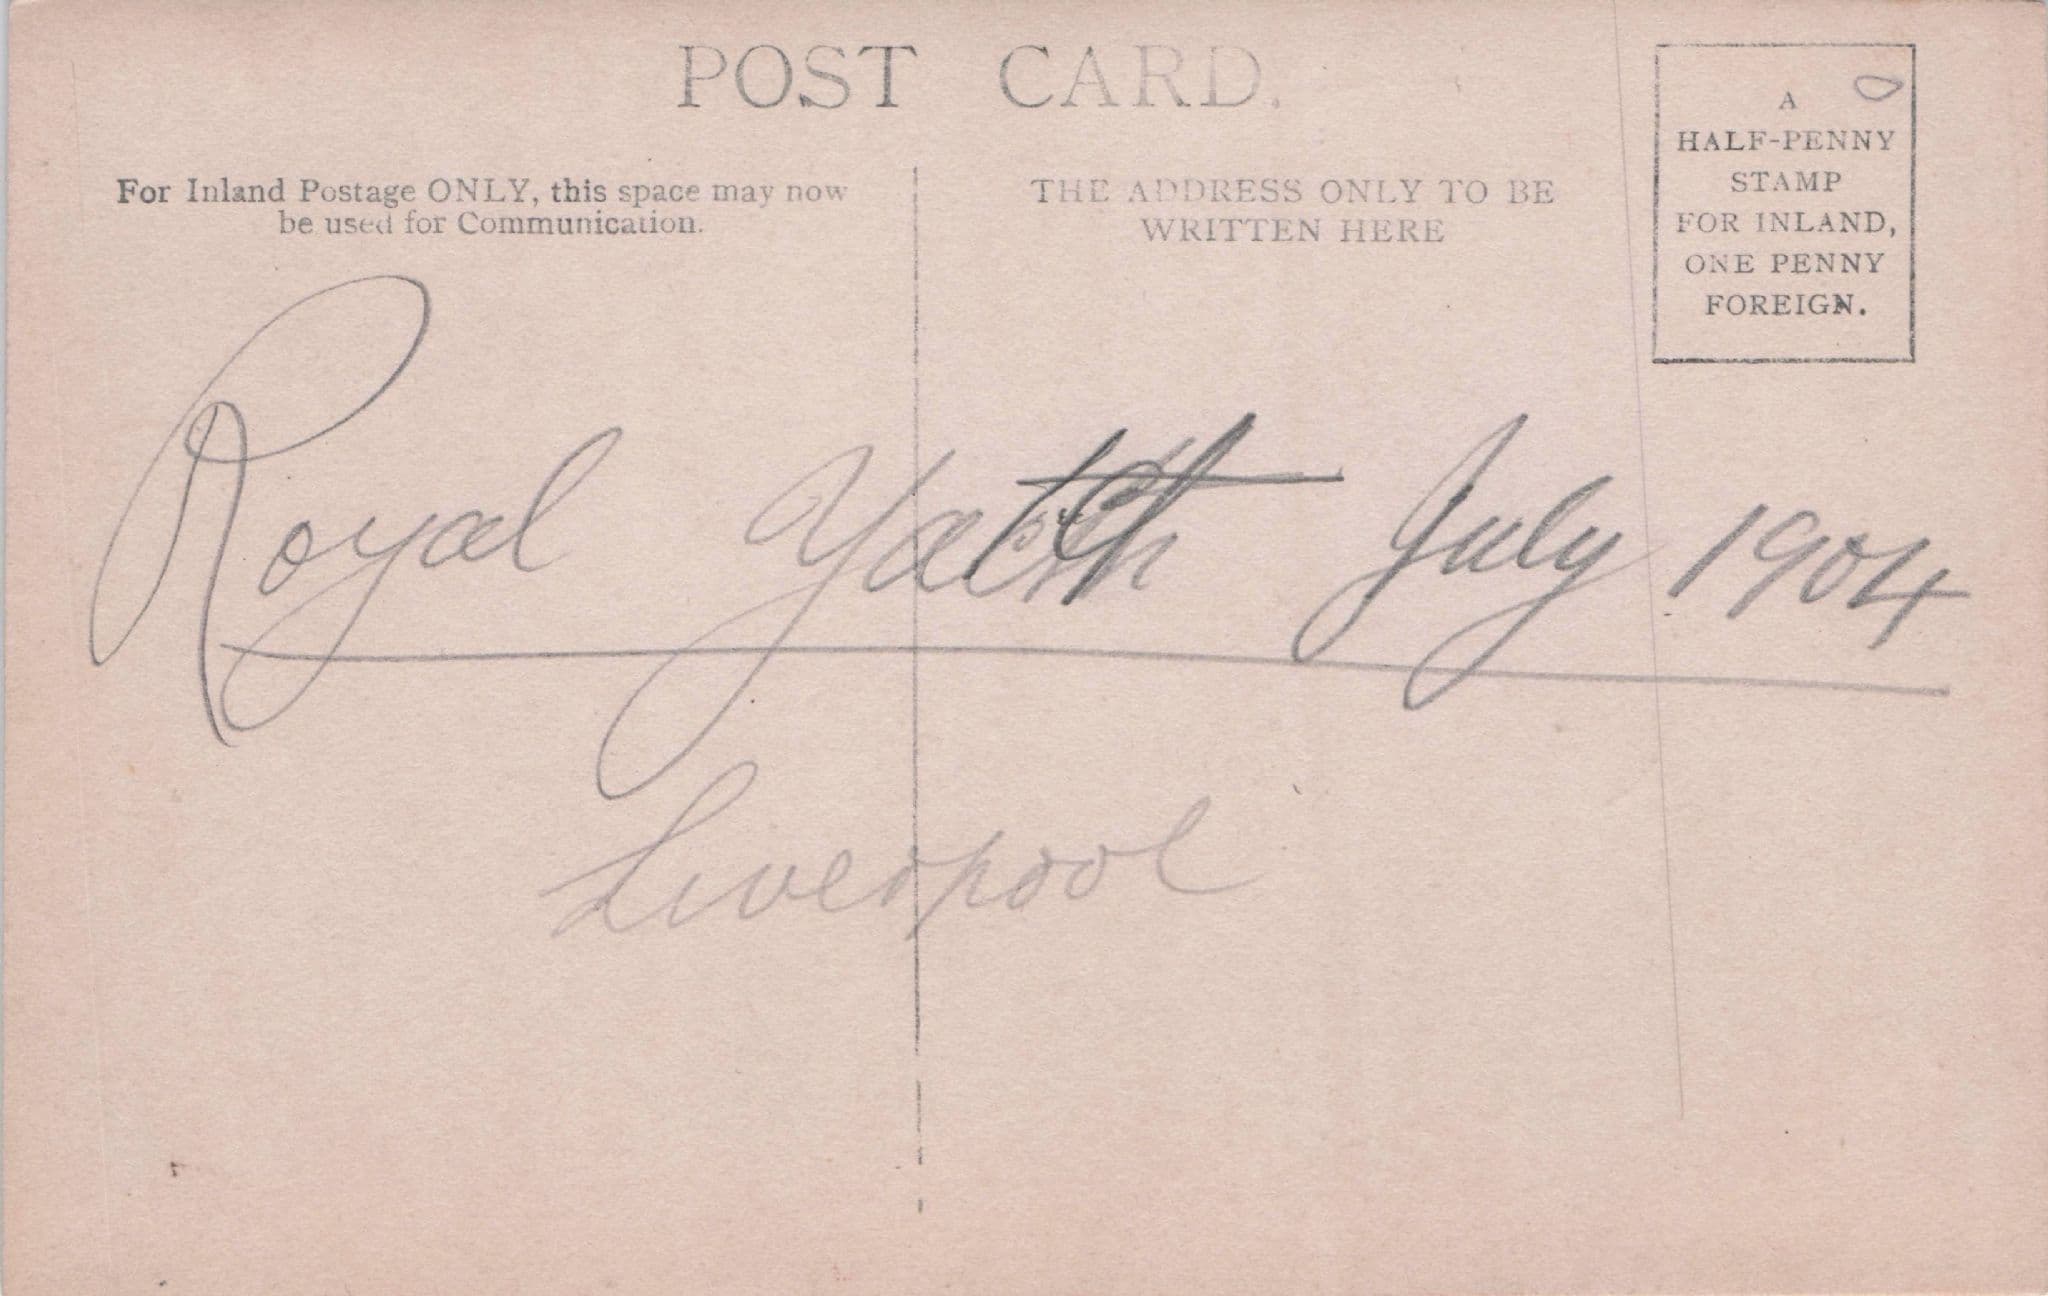 POST CARD.
For Inland Postage ONLY, this space may now
be used for Communication.
THE ADDRESS ONLY TO BE
WRITTEN HERE
A
HALF-PENNY
STAMP
FOR INLAND,
ONE PENNY
FOREIGN.
Royal Yacht July 1904
Liverpool